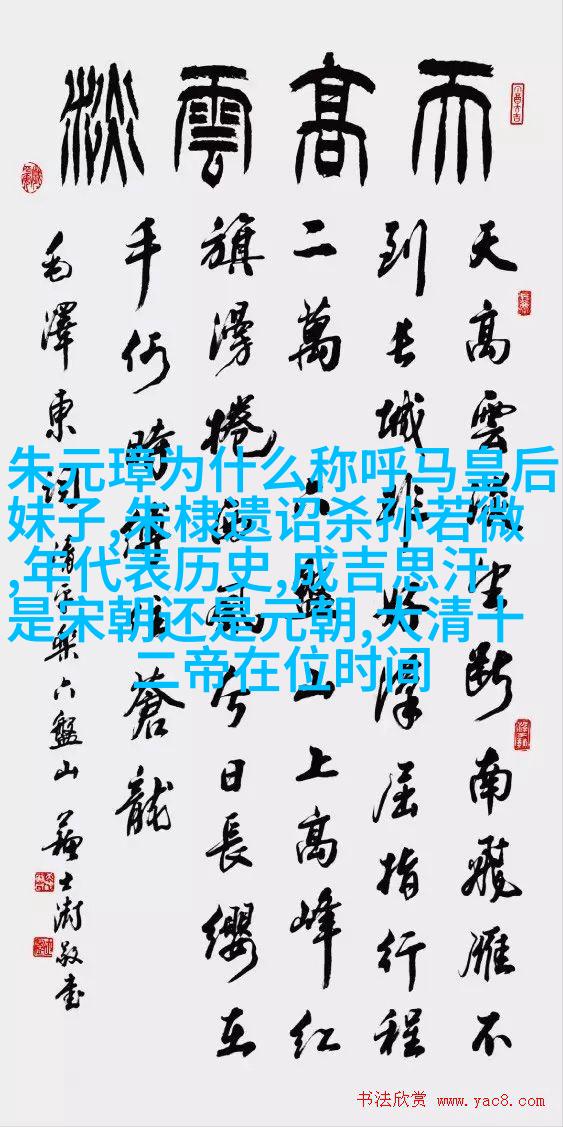 天高雲淡
天高雲淡望斷南飛雁不
到長城非好漢屈指行程
二萬六盤山上高峰紅
旗漫捲西風今日長纓在
手何時縛住蒼龍
毛澤東詞清平樂六盤山 蘇士澍敬書
朱元璋为什么称呼马皇后
妹子,朱棣遗诏杀孙若微
,年代表历史,成吉思汗
是宋朝还是元朝,大清十
二帝在位时间
书法欣赏 www.yac8.com